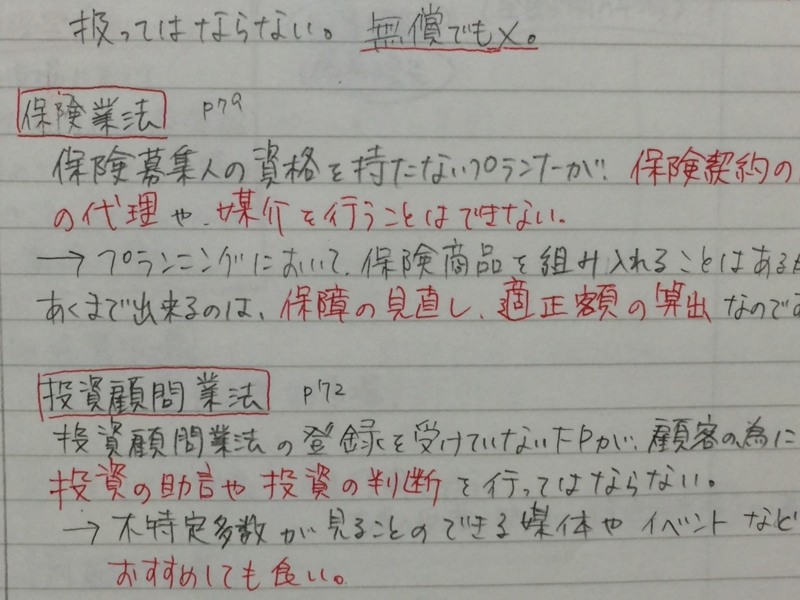 扱ってはならない。 無償でも×。
保険業法 p79
保険募集人の資格を持たないプランナーが、保険契約の
の代理や、媒介を行うことはできない。
→プランニングにおいて、保険商品を組み入れることはある
あくまで出来るのは、保障の見直し、適正額の算出なのです
投資顧問業法 p72
投資顧問業法の登録を受けていないFPが、顧客の為に
投資の助言や投資の判断を行ってはならない。
→不特定多数が見ることのできる媒体やイベントなど
おすすめしても良い。